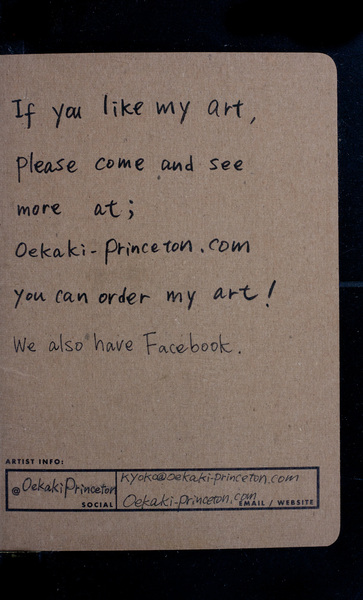 If you like my art,
please come and see
more at;
Oekaki-Princeton.com
you can order my art!
We also have Facebook.
ARTIST INFO:
@OekakiPrinceton
SOCIAL
kyoko@oekaki-princeton.com
Oekaki-princeton.com
EMAIL / WEBSITE